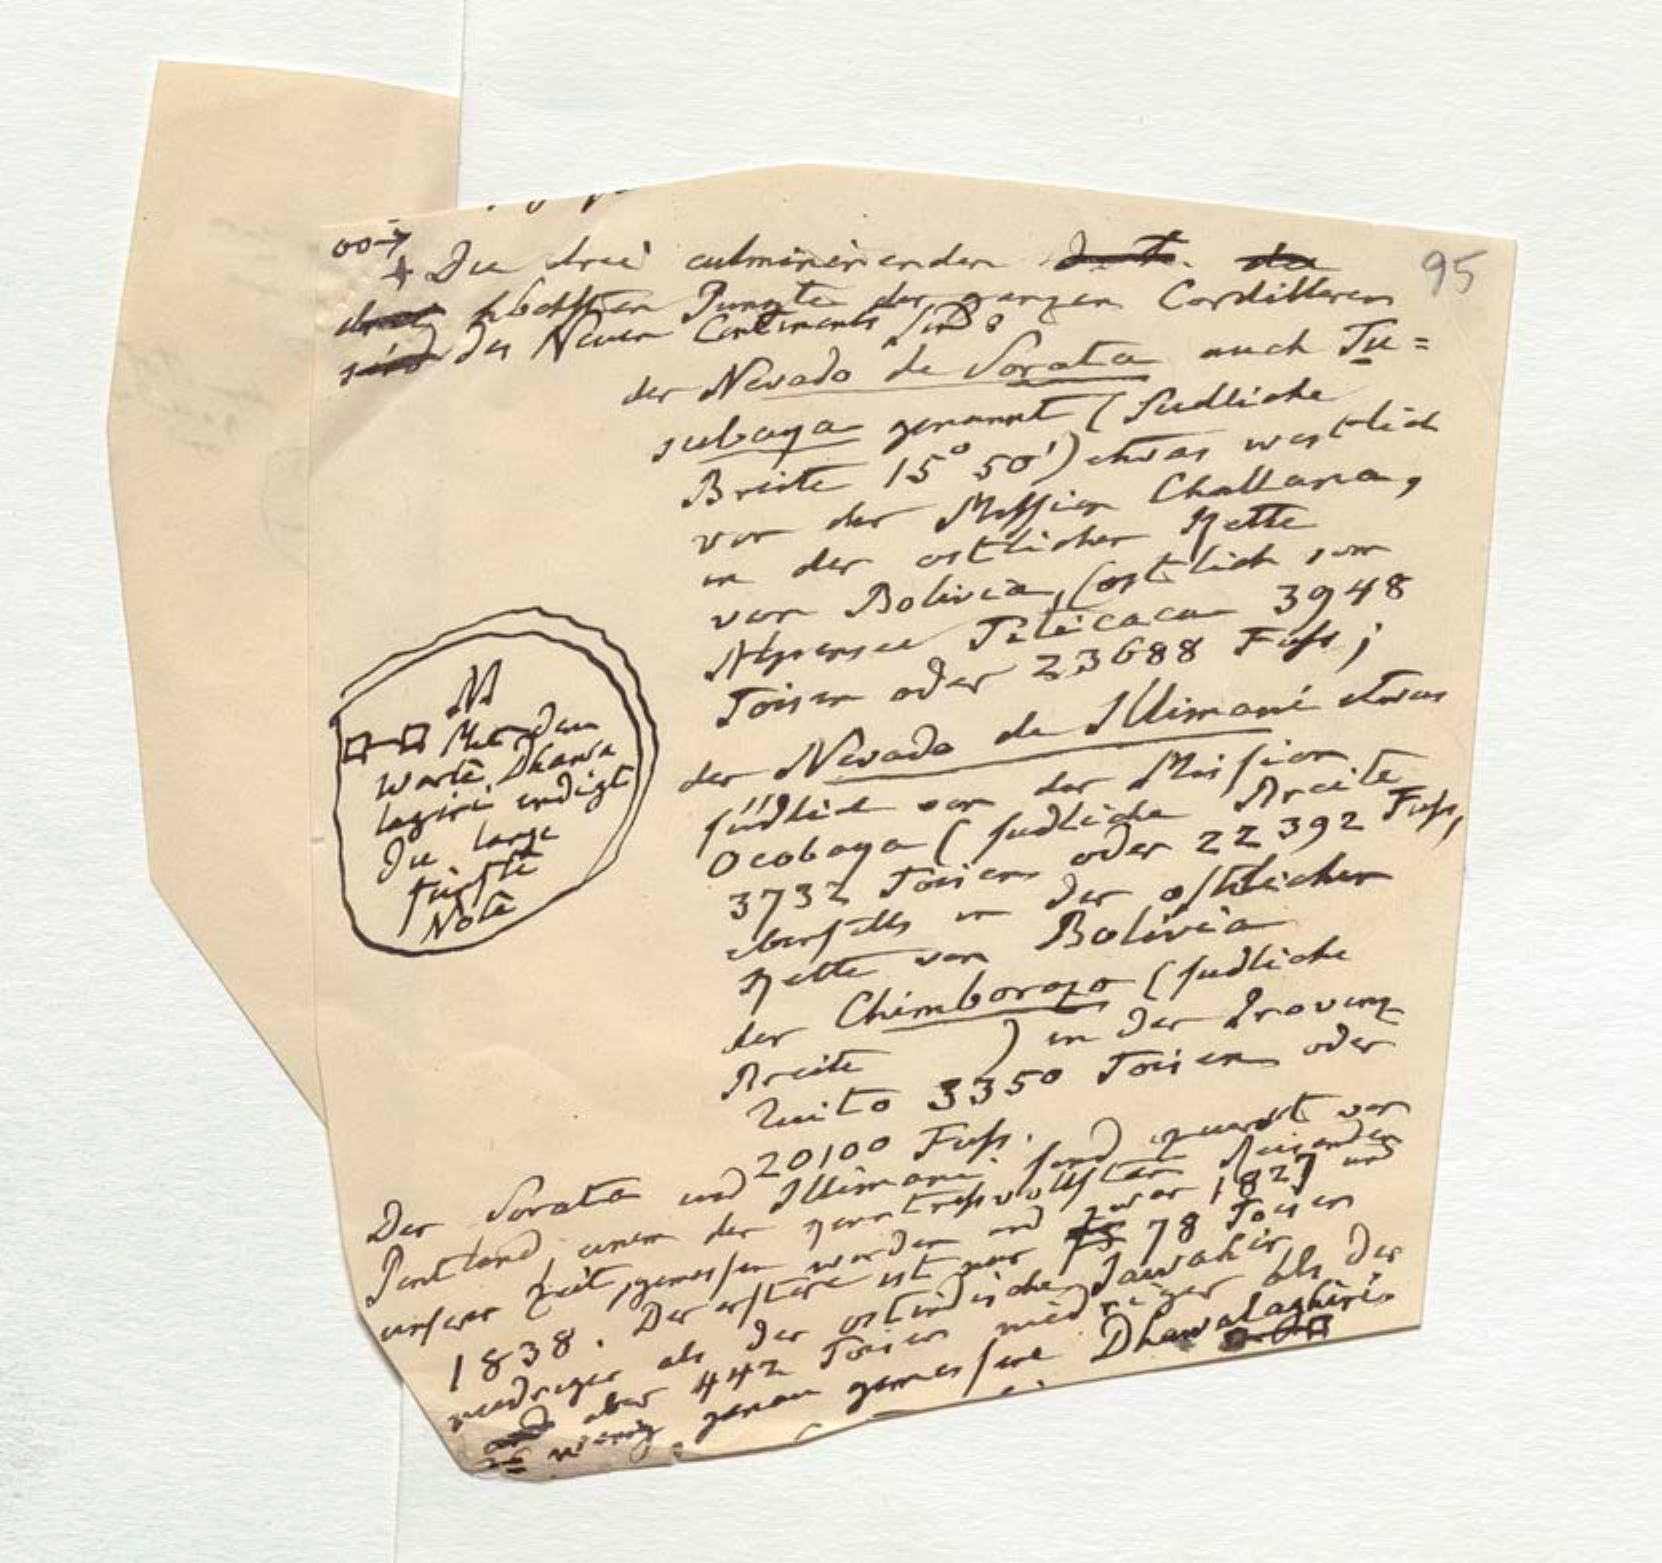 95
Die drei culminirenden
höchsten Puncte der ganzen Cordilleren
des Neuen Continents sind:
der Nevado de Sorata auch Tu=
subaya genannt (südliche
Breite 15° 50') etwas westlich
von der Mission Challana,
in der östlichen Kette
von Bolivia, (östlich vom
Alpensee Titicaca 3948
Toisen oder 23688 Fuss;
der Nevado de Illimani etwas
südlich von der Mission
Ocobaya (südliche Breite
3732 Toisen oder 22392 Fuss,
ebenfalls in der östlichen
Kette von Bolivia
der Chimborazo (südliche
Breite ) in der Provinz
Quito 3350 Toisen oder
20100 Fuss.
Der Sorata und Illimani sind zuerst von
Pentland, einem der kenntnissvollsten Reisenden
unserer Zeit, gemessen worden und zwar 1827 und
1838. Der erstere ist nur 78 Toisen
niedriger als der ostindische Jawahir,
aber 442 Toisen niedriger als der
wenig genau gemessene Dhawalaghiri.
N
Mit dem
Worte Dhawa
lagiri endigt
die lange
fünfte
Note